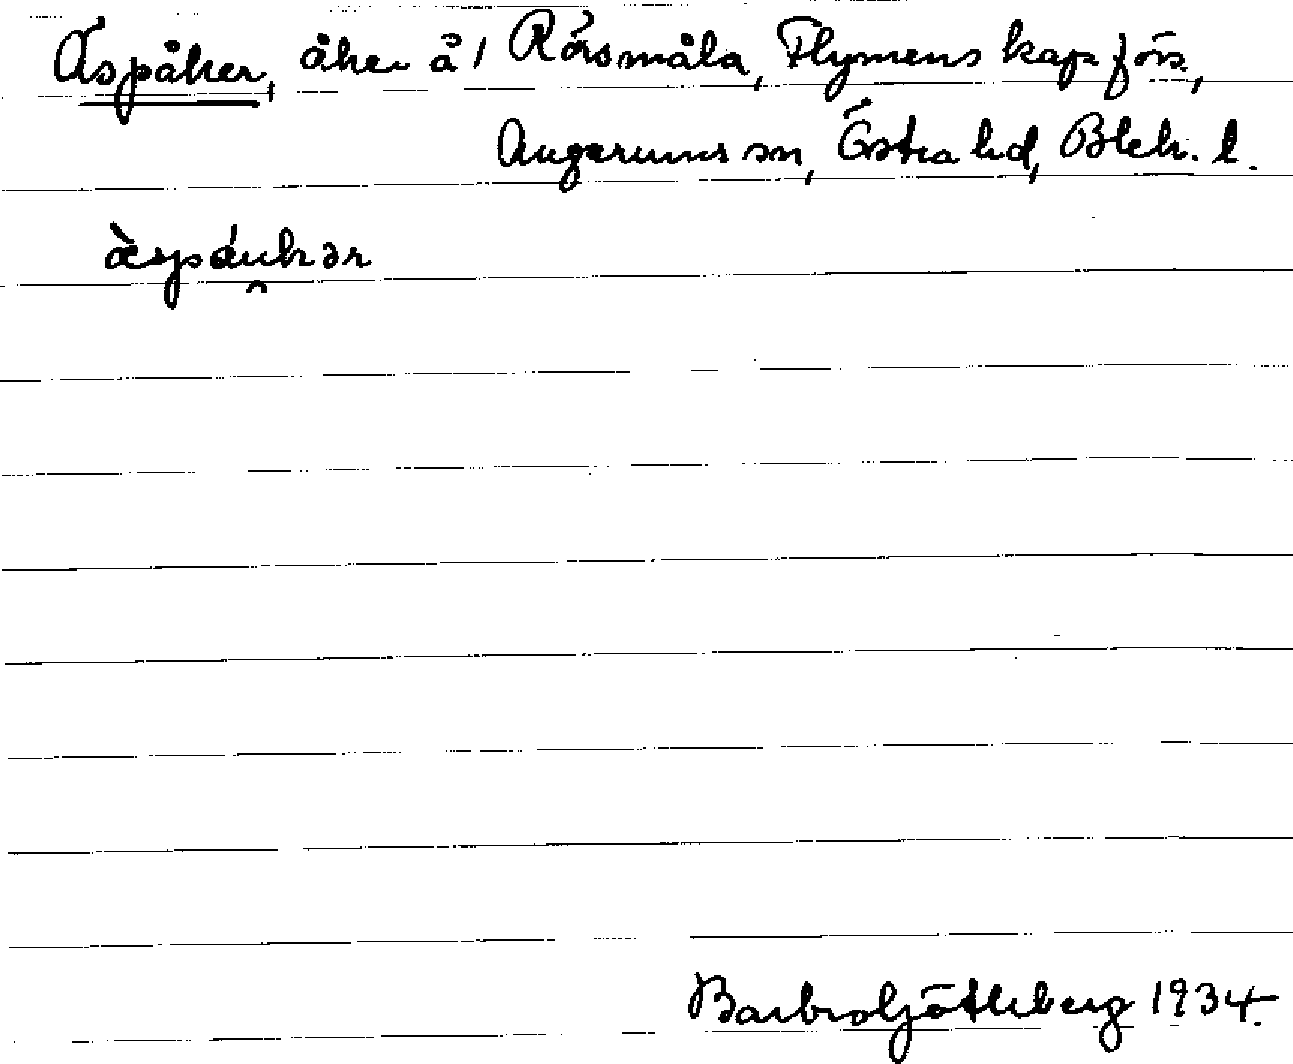 Äspåker, åker å 1 Rösmåla, Flymens kap förs.,
Augerums sn, Östra hd, Blek. l.
Barbro Götlberg 1934.